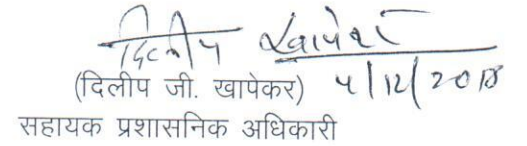 दिलीप खापेकर
(दिलीप जी. खापेकर) 4/12/2018
सहायक प्रशासनिक अधिकारी